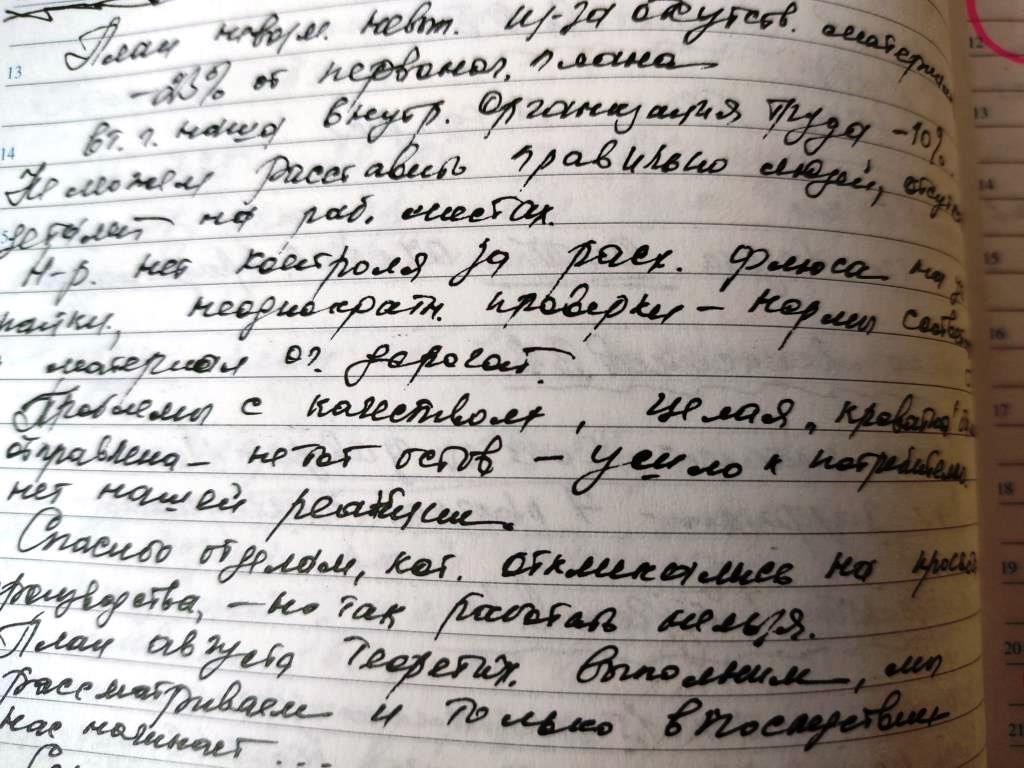 План невып. из-за отсутств. материал
-23% от первонач. плана
в т.ч. наша внутр. организация труда -10%
Не можем расставить правильно людей, отсут
деталей на раб. местах.
Н-р. нет контроля за расх. флюса на
пайки, неоднократн. проверки - нормы соотв
материал оч. дорогой.
Проблемы с качеством, целая "кроватка"
отправлена - не тот остов - ушло к потребителю
нет нашей реакции.
Спасибо отделам, кот. откликались на просьб
роизводства, - но так работать нельзя.
План августа теоретич. выполним, мы
рассматриваем и только впоследствии
нас начинает ...
12
13
14
13
14
15
16
17
18
19
20
21